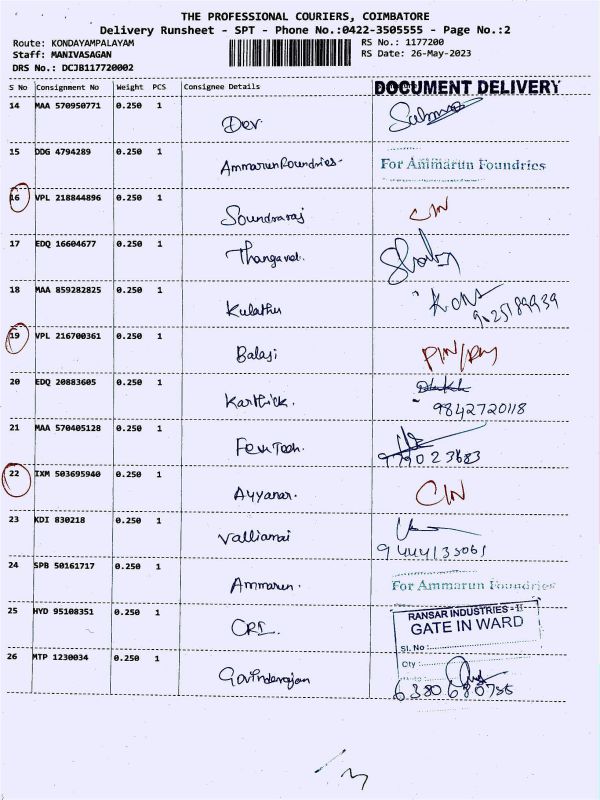 THE PROFESSIONAL COURIERS, COIMBATORE
Delivery Runsheet - SPT - Phone No.:0422-3505555 - Page No.:2
Route: KONDAYAMPALAYAM RS No.: 1177200
Staff: MANIVASAGAN RS Date: 26-May-2023
DRS No.: DCJB117720002
S No Consignment No Weight PCS Consignee Details DOCUMENT DELIVERY
14 MAA 570950771 0.250 1
Dev
15 DDG 4794289 0.250 1
Ammarun Foundries- For Ammarun Foundries
16 VPL 218844896 0.250 1
Soundraraj C/N
17 EDQ 16604677 0.250 1
Thangavel.
18 MAA 859282825 0.250 1
Kulathu
19 VPL 216700361 0.250 1
Balaji
20 EDQ 20883605 0.250 1
Karthick. 9842720118
21 MAA 570405128 0.250 1
22 IXM 503695940 0.250 1
Ayyanar. C/N
23 KDI 830218 0.250 1
Valliamai
9444135061
24 SPB 50161717 0.250 1
Ammarun. For Ammarun Foundries
25 HYD 95108351 0.250 1
CRI. RANSAR INDUSTRIES - II
GATE IN WARD
Sl. No :
Qty :
26 MTP 1230034 0.250 1
Govinderajan